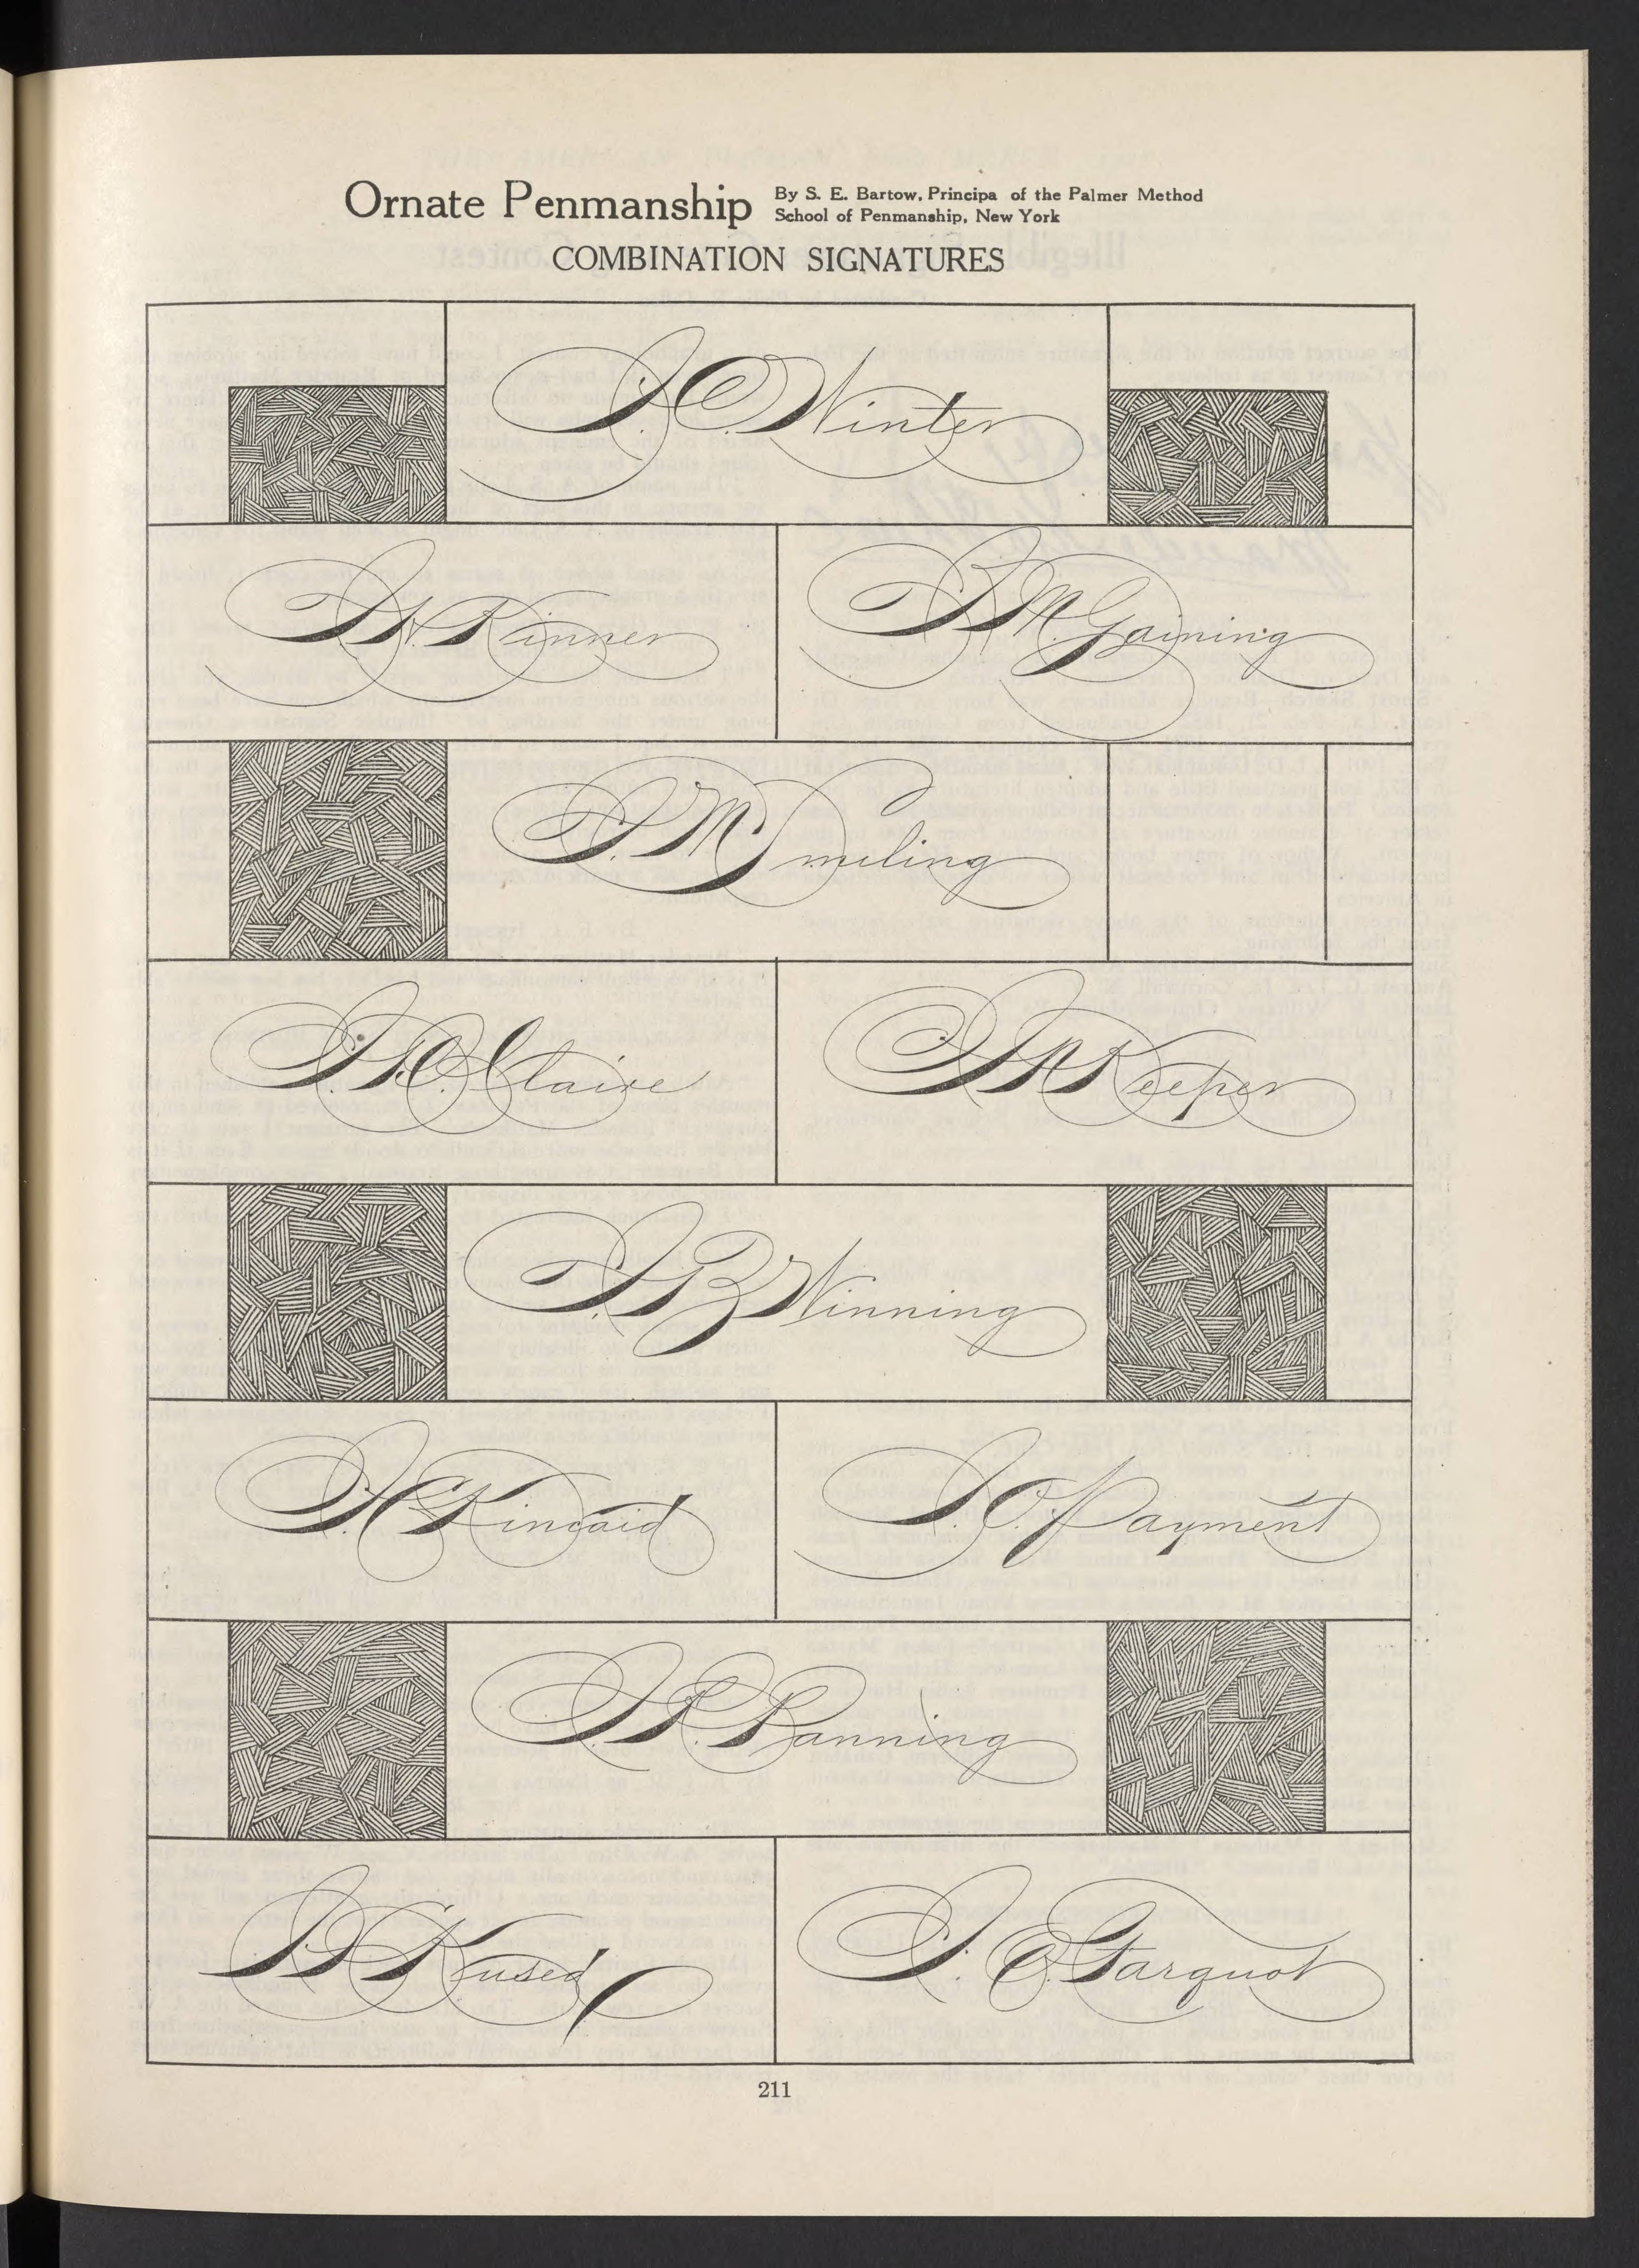 Ornate Penmanship By S. E. Bartow, Principa of the Palmer Method
School of Penmanship, New York
COMBINATION SIGNATURES
I. C. Winter
Kinner
M. Gaining
I. M. Smiling
Claire
Keeper
I. B. Winning
Kincaid
I. O. Payment
I. R. Banning
Kused
Farquot
211